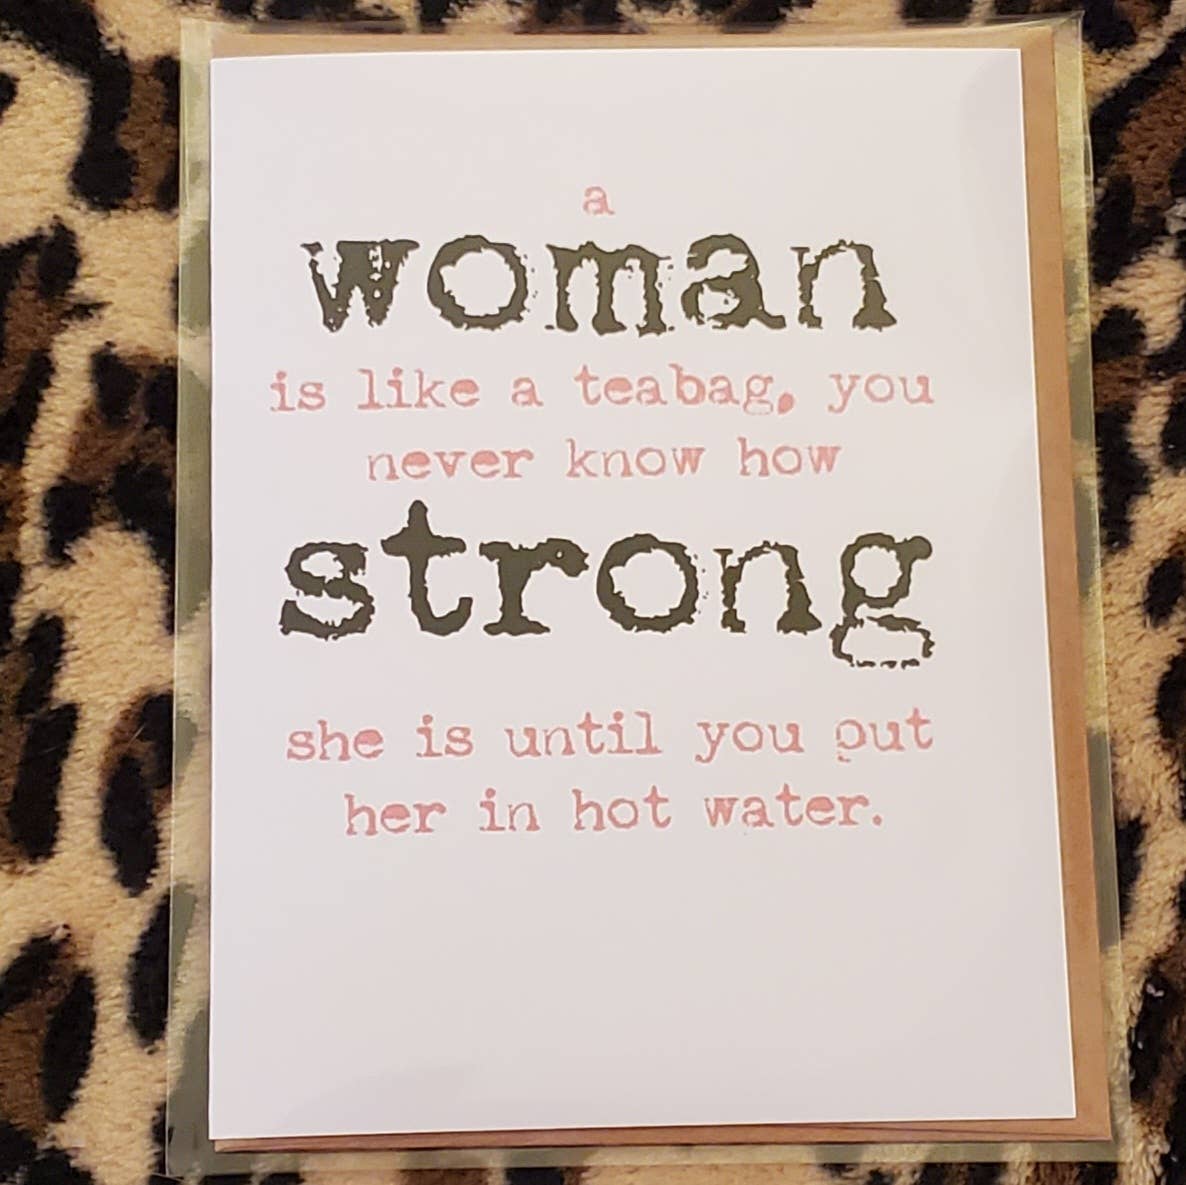 a
woman
is like a teabag, you
never know how
strong
she is until you put
her in hot water.